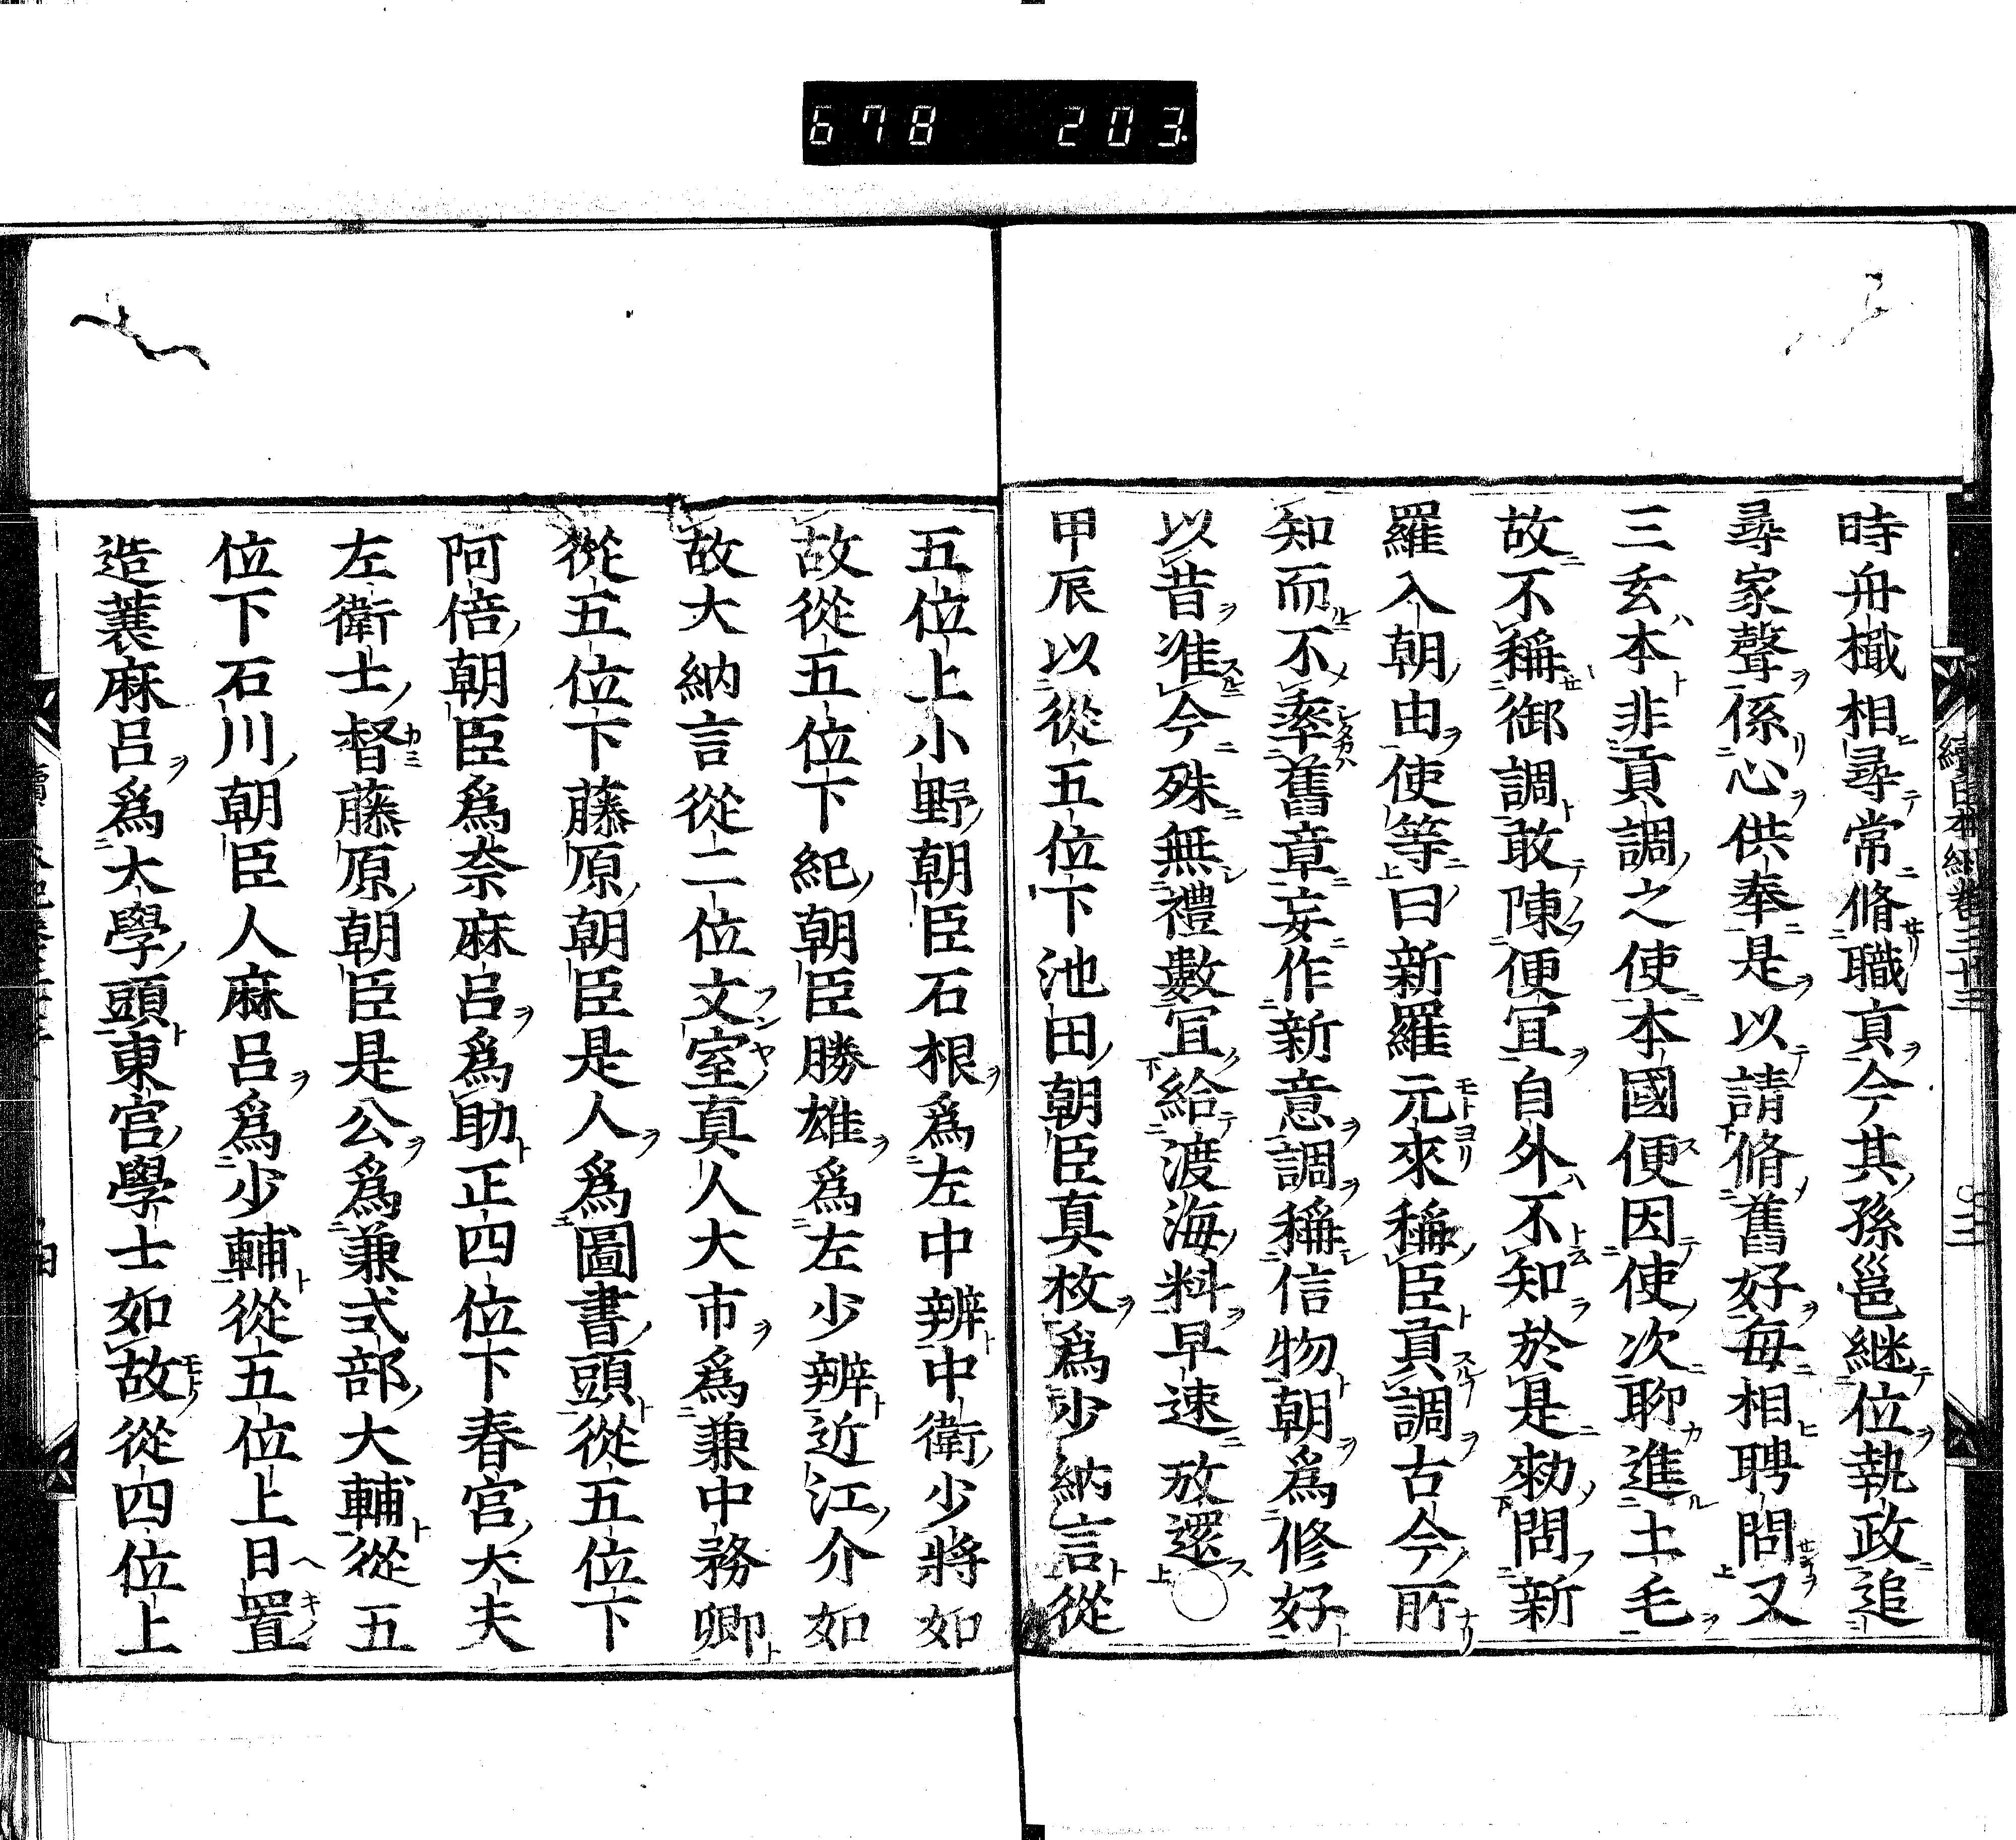 678 203
時舟檝相尋常脩職貢今其孫邕継位執政追
尋家聲係心供奉是以請脩舊好毎相聘問又
三玄本非貢調之使本國便因使次聊進土毛
故不稱御調敢陳便宜自外不知於是勑問新
羅入朝由使等曰新羅元來稱臣貢調古今所
知而不率舊章妄作新意調稱信物朝爲修好
以昔准今殊無禮數宜給渡海料早速放還
甲辰以從五位下池田朝臣真枚爲少納言從
五位上小野朝臣石根爲左中辨中衛少將如
故從五位下紀朝臣勝雄爲左少辨近江介如
故大納言從二位文室真人大市爲兼中務卿
從五位下藤原朝臣是人爲圖書頭從五位下
阿倍朝臣爲奈麻呂爲助正四位下春宮大夫
左衛士督藤原朝臣是公爲兼式部大輔從五
位下石川朝臣人麻呂爲少輔從五位上日置
造蓑麻呂爲大學頭東宮學士如故從四位上